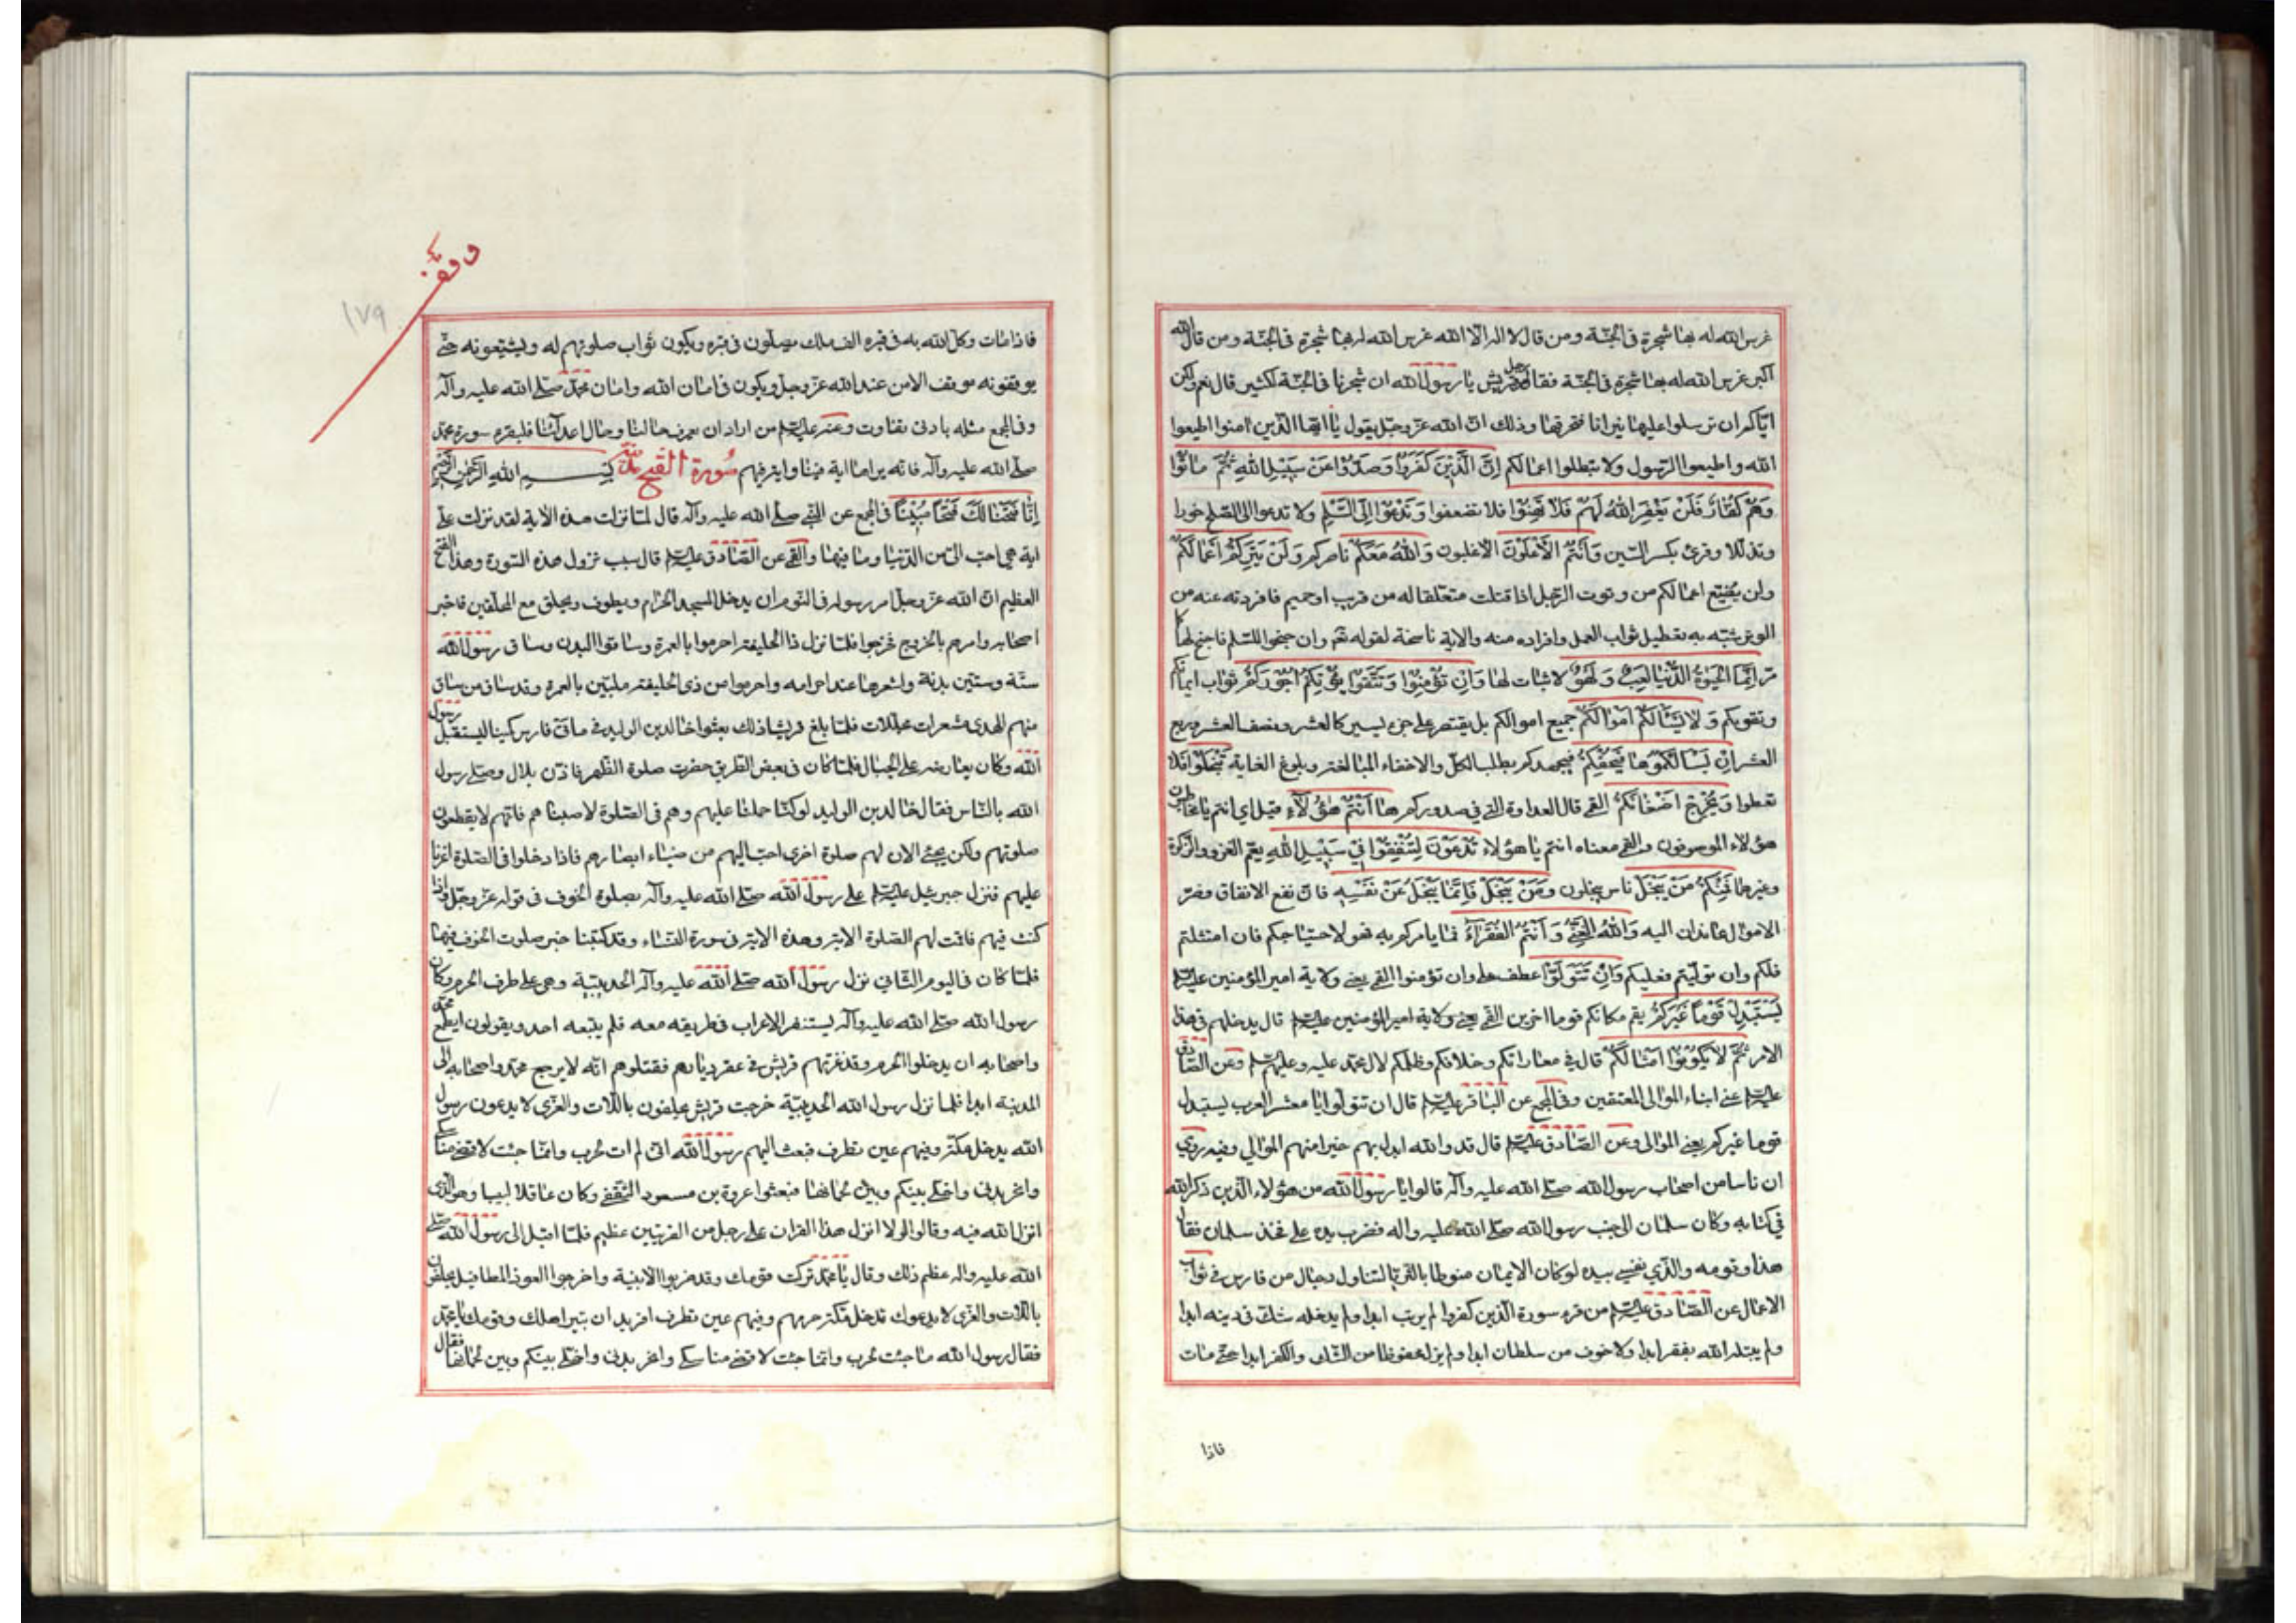 غرس الله له بها شجرة في الجنة ومن قال لا اله الا الله غرس الله له بها شجرة في الجنة ومن قال الله
اكبر غرس الله له بها شجرة في الجنة فقال رجل من قريش يا رسول الله ان شجرنا في الجنة لكثير قال نعم ولكن
اياكم ان ترسلوا عليها نيرانا فتحرقها وذلك ان الله عز وجل يقول يا ايها الذين امنوا اطيعوا
الله واطيعوا الرسول ولا تبطلوا اعمالكم اِنَّ الَّذينَ كَفَرُوا وَصَدُّوا عَنْ سَبيلِ اللهِ ثُمَّ ماتُوا
وَهُمْ كُفّارٌ فَلَنْ يَغْفِرَ اللهُ لَهُمْ فَلا تَهِنُوا فلا تضعفوا وَتَدْعُوا اِلَى السَّلْمِ ولا تدعوا الى الصلح خورا
وتذللا وقرئ بكسر السين وَاَنْتُمُ الْاَعْلَوْنَ الاغلبون وَاللهُ مَعَكُمْ ناصركم وَلَنْ يَتِرَكُمْ اَعْمالَكُمْ
ولن يضيع اعمالكم من وترت الرجل اذا قتلت متعلقا له من قريب او حميم فافردته عنه من
الوتر شبه به تعطيل ثواب العمل وافراده منه والاية ناسخة لقوله تعم وان جنحوا للسلم فاجنح لها كا
مر اِنَّمَا الْحَيوةُ الدُّنْيا لَعِبٌ وَلَهْوٌ لا ثبات لها وَاِنْ تُؤْمِنُوا وَتَتَّقُوا يُؤْتِكُمْ اُجُورَكُمْ ثواب ايمانكم
وتقويكم وَلا يَسْاَلْكُمْ اَمْوالَكُمْ جميع اموالكم بل يقتصر على جزء يسير كالعشر ونصف العشر وربع
العشر اِنْ يَسْاَلْكُمُوها فَيُحْفِكُمْ فيجهدكم بطلب الكل والاحفاء المبالغة وبلوغ الغاية تَبْخَلُوا فلا
تعطوا وَيُخْرِجْ اَضْغانَكُمْ القمي قال العداوة التي في صدوركم ها اَنْتُمْ هؤُلاءِ قيل اي انتم يا مخاطبون
هؤلاء الموصوفون والقمي معناه انتم يا هؤلاء تُدْعَوْنَ لِتُنْفِقُوا في سَبيلِ اللهِ يعم الغزو والزكوة
وغيرهما فَمِنْكُمْ مَنْ يَبْخَلُ ناس يبخلون وَمَنْ يَبْخَلْ فَاِنَّما يَبْخَلُ عَنْ نَفْسِه فان نفع الانفاق وضر
الاموال عائدان اليه وَاللهُ الْغَنِيُّ وَاَنْتُمُ الْفُقَراءُ فما يامركم به فهو لاحتياجكم فان امتثلتم
فلكم وان توليتم فعليكم وَاِنْ تَتَوَلَّوْا عطف على وان تؤمنوا القمي يعني ولاية امير المؤمنين عليه السلم
يَسْتَبْدِلْ قَوْماً غَيْرَكُمْ يقم مكانكم قوما اخرين القمي يعني ولاية امير المؤمنين عليه السلم قال يدخلهم في هذا
الامر ثُمَّ لا يَكُونُوا اَمْثالَكُمْ قال في معاداتكم وخلافكم وظلمكم لال محمد عليه وعليهم السلم وعن الصادق
عليه السلم عنى ابناء الموالى المعتقين وفي المجمع عن الباقر عليه السلم قال ان تتولوا يا معشر العرب يستبدل
قوما غيركم يعني الموالى وعن الصادق عليه السلم قال قد والله ابدل بهم خيرا منهم الموالي وفيه روي
ان ناسا من اصحاب رسول الله صلى الله عليه وآله قالوا يا رسول الله من هؤلاء الذين ذكر الله
في كتابه وكان سلمان الى جنب رسول الله صلى الله عليه واله فضرب يده على فخذ سلمان فقال
هذا وقومه والذي نفسي بيده لو كان الايمان منوطا بالثريا لتناوله رجال من فارس في ثواب
الاعمال عن الصادق عليه السلم من قرء سورة الذين كفروا لم يرتب ابدا ولم يدخله شك في دينه ابدا
ولم يبتله الله بفقر ابدا ولا خوف من سلطان ابدا ولم يزل محفوظا من الشك والكفر ابدا حتى مات
فاذا
وقف
١٧٩
فاذا مات وكل الله به في قبره الف ملك يصلون في قبره ويكون ثواب صلوتهم له ويشيعونه حتى
يوقفونه موقف الامن عند الله عز وجل ويكون في امان الله وامان محمد صلى الله عليه وآله
وفي المجمع مثله بادنى تفاوت وعنه عليه السلم من اراد ان يعرف حالنا وحال اعدائنا فليقرء سورة محمد
صلى الله عليه وآله فانه يراها اية فينا واية فيهم سُورة الفتح مدنية بسم الله الرحمن الرحيم
اِنّا فَتَحْنا لَكَ فَتْحاً مُبيناً في المجمع عن النبي صلى الله عليه وآله قال لما نزلت هذه الاية لقد نزلت علي
اية هي احب الي من الدنيا وما فيها والقمي عن الصادق عليه السلم قال سبب نزول هذه السورة وهذا الفتح
العظيم ان الله عز وجل امر رسوله في النوم ان يدخل المسجد الحرام ويطوف ويحلق مع المحلقين فاخبر
اصحابه وامرهم بالخروج فخرجوا فلما نزل ذا الحليفة احرموا بالعمرة وساقوا البدن وساق رسول الله
ستة وستين بدنة واشعرها عند احرامه واحرموا من ذي الحليفة ملبين بالعمرة وقد ساق من ساق
منهم الهدى مشعرات مجللات فلما بلغ قريشا ذلك بعثوا خالد بن الوليد في مأتي فارس كمينا ليستقبل رسول
الله وكان يعارضه على الجبال فلما كان في بعض الطريق حضرت صلوة الظهر فاذن بلال وصلى رسول
الله بالناس فقال خالد بن الوليد لو كنا حملنا عليهم وهم في الصلوة لاصبناهم فانهم لا يقطعون
صلوتهم ولكن يجئ الان لهم صلوة اخرى احب اليهم من ضياء ابصارهم فاذا دخلوا في الصلوة اغرنا
عليهم فنزل جبرئيل عليه السلم على رسول الله صلى الله عليه وآله بصلوة الخوف في قوله عز وجل واذا
كنت فيهم فاقمت لهم الصلوة الاية وهذه الاية في سورة النساء وقد كتبنا خبر صلوت الخوف فيها
فلما كان في اليوم الثاني نزل رسول الله صلى الله عليه وآله الحديبية وهي على طرف الحرم وكان
رسول الله صلى الله عليه وآله يستنفر الاعراب في طريقه معه فلم يتبعه احد ويقولون ايطمع محمد
واصحابه ان يدخلوا الحرم وقد غزتهم قريش في عقر ديارهم فقتلوهم انه لا يرجع محمد واصحابه الى
المدينة ابدا فلما نزل رسول الله الحديبية خرجت قريش يحلفون باللات والعزى لا يدعون رسول
الله يدخل مكة وفيهم عين تطرف فبعث اليهم رسول الله اني لم ات لحرب وانما جئت لاقضي مناسكي
وانحر بدني واخلي بينكم وبين لحمانها فبعثوا عروة بن مسعود الثقفي وكان عاقلا لبيبا وهو الذي
انزل الله فيه وقالوا لولا انزل هذا القران على رجل من القريتين عظيم فلما اقبل الى رسول الله صلى
الله عليه واله عظم ذلك وقال يا محمد تركت قومك وقد ضربوا الابنية واخرجوا العوذ المطافيل يحلفون
باللات والعزى لا يدعوك تدخل مكة حرمهم وفيهم عين تطرف افتريد ان تبير اهلك وقومك يا محمد
فقال رسول الله ما جئت لحرب وانما جئت لاقضي مناسكي وانحر بدني واخلي بينكم وبين لحمانها فقال